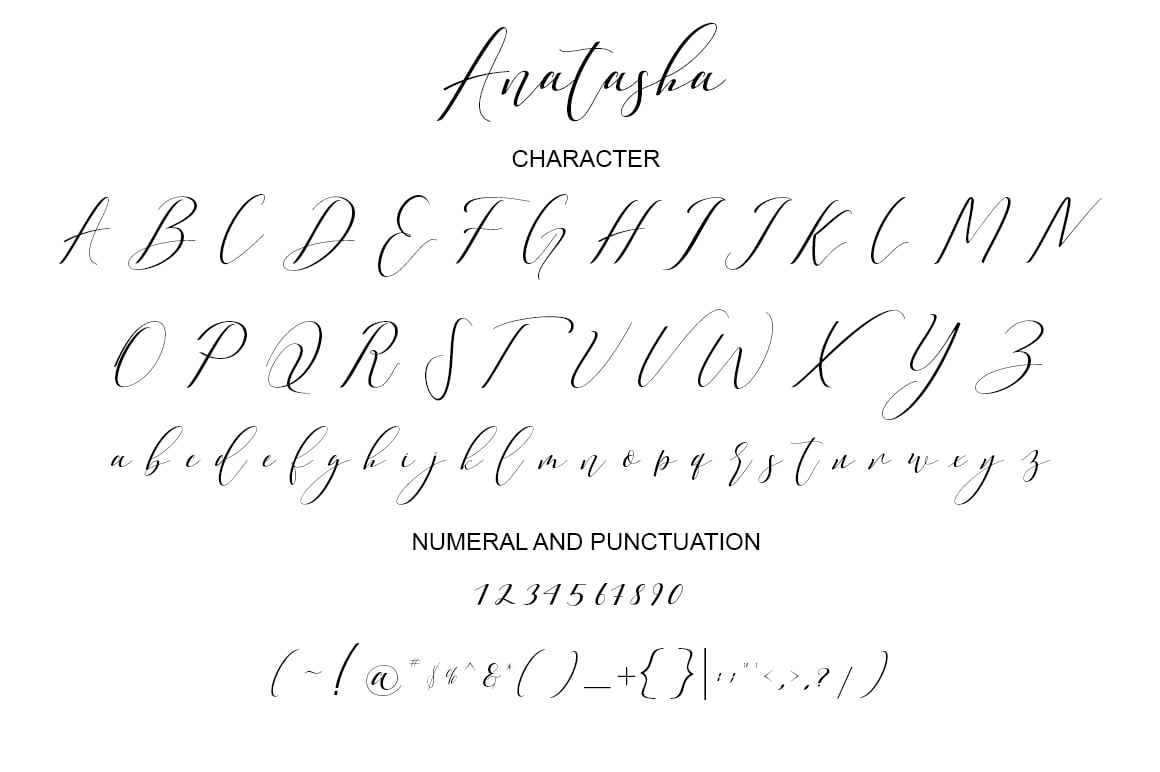 Anatasha
CHARACTER
A B C D E F G H I J K L M N
O P Q R S T U V W X Y Z
a b c d e f g h i j k l m n o p q r s t u v w x y z
NUMERAL AND PUNCTUATION
1 2 3 4 5 6 7 8 9 0
( ~ ! @ # $ % ^ & * ( ) _ + { } | : ; " ' < , > , ? / )